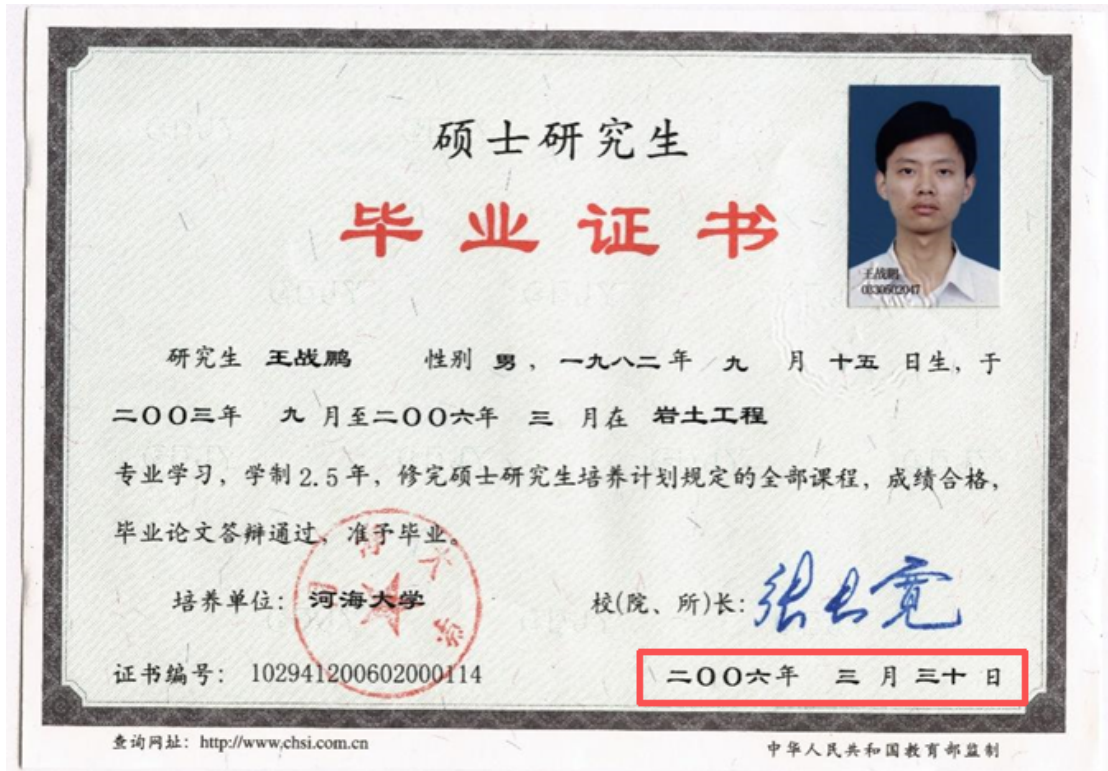 硕士研究生
毕业证书
王战鹏
0330502047
研究生 王战鹏 性别 男，一九八二年 九 月 十五 日生，于
二〇〇三年 九 月至二〇〇六年 三 月在 岩土工程
专业学习，学制2.5年，修完硕士研究生培养计划规定的全部课程，成绩合格，
毕业论文答辩通过，准予毕业。
培养单位：河海大学 校(院、所)长：张长宽
证书编号：102941200602000114 二〇〇六年 三 月 三十 日
查询网址：http://www.chsi.com.cn 中华人民共和国教育部监制